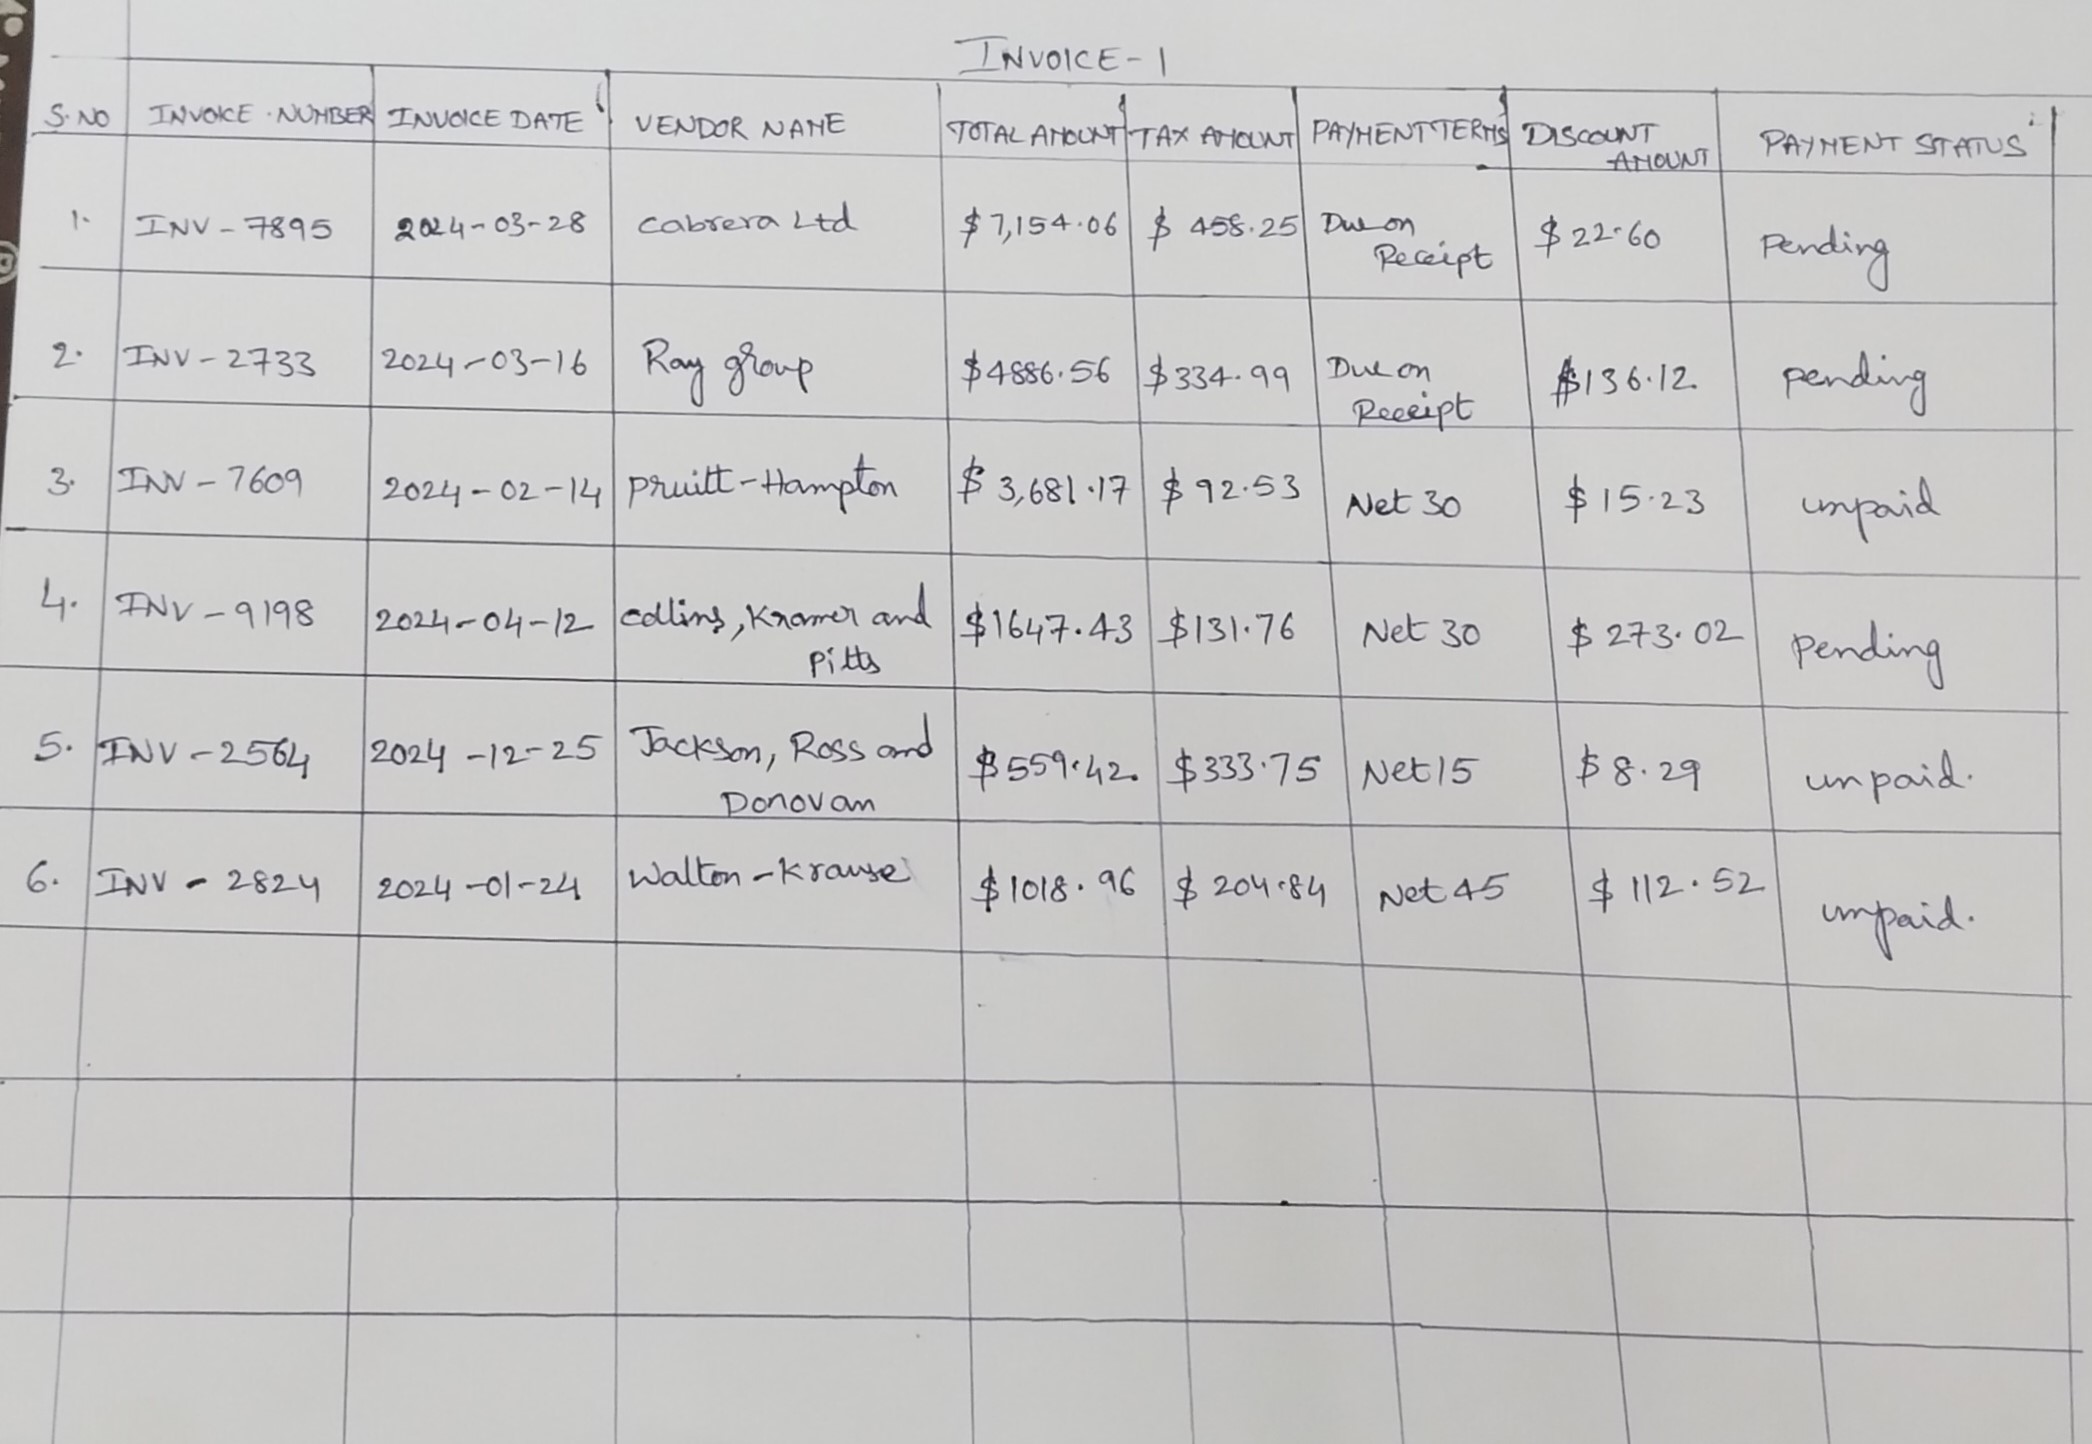 INVOICE-1
S.NO INVOICE NUMBER INVOICE DATE VENDOR NAME TOTAL AMOUNT TAX AMOUNT PAYMENT TERMS DISCOUNT AMOUNT PAYMENT STATUS
1. INV-7895 2024-03-28 Cabrera Ltd $7,154.06 $458.25 Due on Receipt $22.60 Pending
2. INV-2733 2024-03-16 Ray group $4886.56 $334.99 Due on Receipt $136.12 pending
3. INV-7609 2024-02-14 Pruitt-Hampton $3,681.17 $92.53 Net 30 $15.23 unpaid
4. INV-9198 2024-04-12 Collins, Kramer and Pitts $1647.43 $131.76 Net 30 $273.02 Pending
5. INV-2564 2024-12-25 Jackson, Ross and Donovan $559.42 $333.75 Net 15 $8.29 unpaid.
6. INV-2824 2024-01-24 Walton-Krause $1018.96 $204.84 Net 45 $112.52 unpaid.